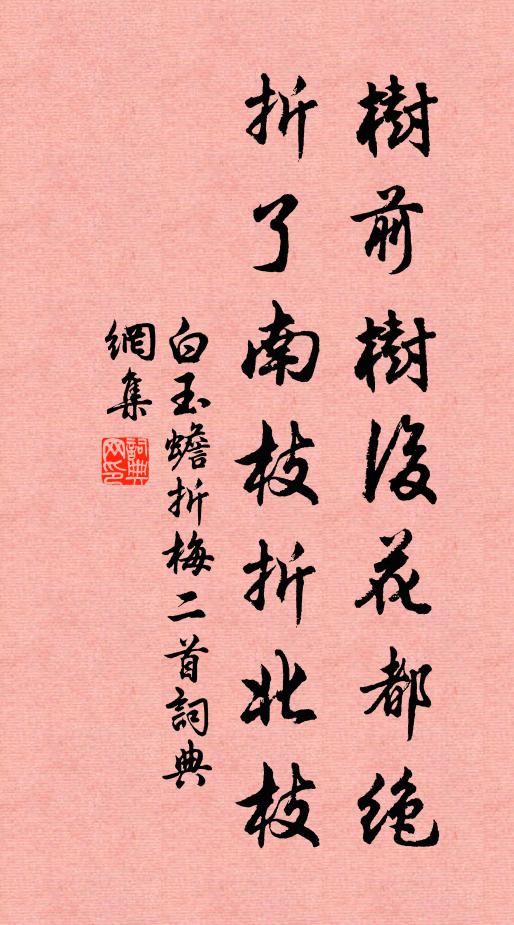 樹前樹後花都絕
折了南枝折北枝
白玉蟾折梅二首詞典
網集
詞典網印